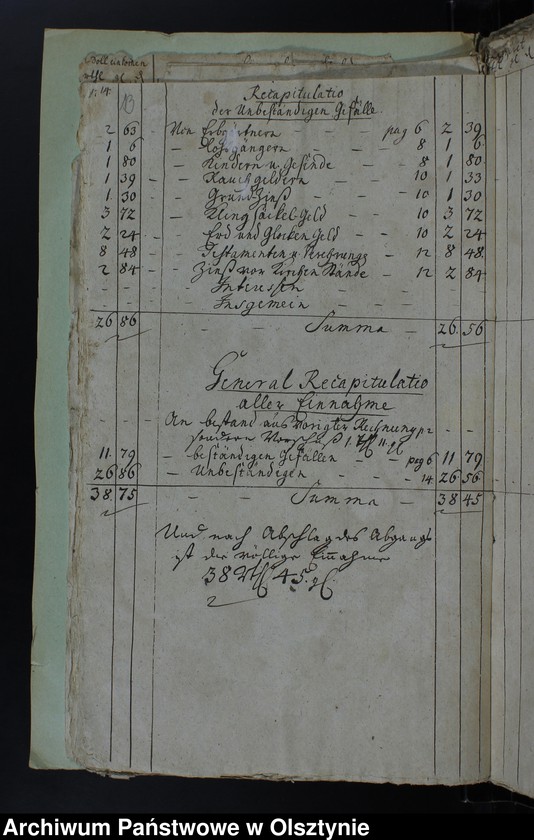 Soll einkommen
rthl gl d
p. 14.
13
Recapitulatio
der Unbeständigen Gefälle
2 63 Von Erbgärtnern - - - pag 6 2 39
1 6 - Losgängern - - 8 1 6
1 80 - Kindern u. Gesinde - 8 1 80
1 39 - Rauchgeldern - - 10 1 33
1 30 - Grund Zinß - - 10 1 30
3 72 - Klingsäckel-Geld - - 10 3 72
2 24 - Erd und Glocken Geld - 10 2 24
8 48 - Testamenten u. Verehrung - 12 8 48
2 84 - Zinß vor Kirchen Stände - 12 2 84
- - - Interessen - - -
- - - Insgemein - - -
26 86 - - Summa - 26 56
General Recapitulatio
aller Einnahme
- - An bestand aus voriger Rechnung - -
sondern Vorschuß 1. 11.
11 79 - beständigen Gefällen - pag 6 11 79
26 86 - Unbeständigen - - 14 26 56
38 75 - - Summa - 38 45
Und nach Abschlag des Abgangs
ist die völlige Einahme
38 Rthl 45 gl
Archiwum Państwowe w Olsztynie